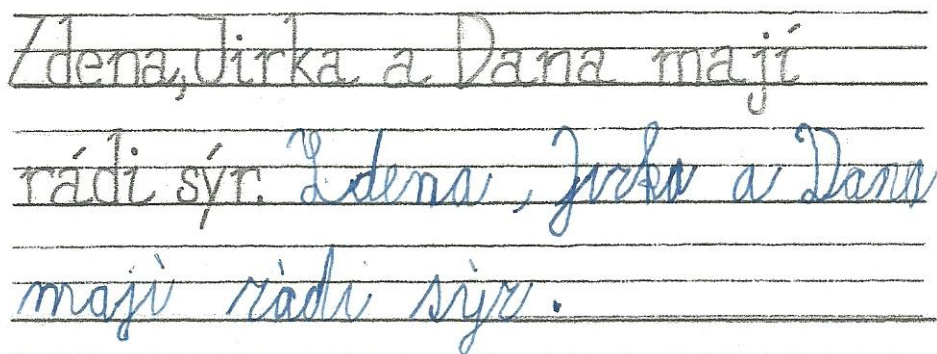 Zdena, Jirka a Dana mají
rádi sýr. Zdena, Jirka a Dana
mají rádi sýr.